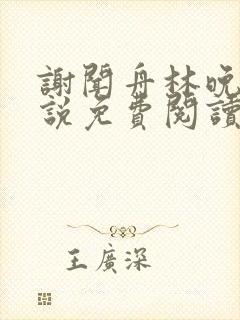 謝聞舟林晚
說免費閱讀
王廣深